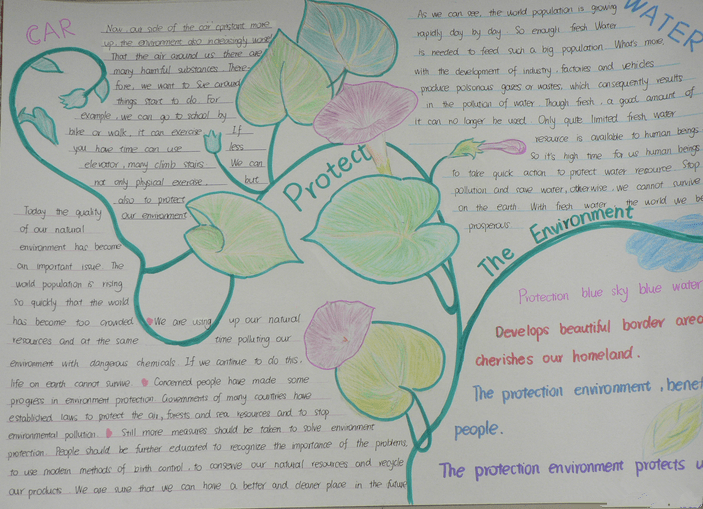 CAR
Now our side of the car constant more
up, the environment also increasingly worse
That the air around us there are
many harmful substances. There-
fore, we want to Sve around
things start to do. For
example, we can go to school by
bike or walk, it can exercise. If
you have time can use less
elevator, many climb stairs. We can
not only physical exercise, but
also to protect
our environment
Today the quality
of our natural
environment has become
an important issue. The
world population is rising
so quickly that the world
has become too crowded. We are using up our natural
resources and at the same time polluting our
environment with dangerous chemicals. If we continue to do this,
life on earth cannot survive. Concerned people have made some
progress in environment protection. Governments of many countries have
established laws to protect the air, forests and sea resources and to stop
environmental pollution. Still more measures should be taken to solve environment
protection. People should be further educated to recognize the importance of the problems,
to use modern methods of birth control, to conserve our natural resources and recycle
our products. We are sure that we can have a better and cleaner place in the future
Protect
The Environment
WATER
As we can see, the world population is growing
rapidly day by day. So enough fresh Water
is needed to feed such a big population. What's more,
with the development of industry, factories and vehicles
produce poisonous gases or wastes, which consequently results
in the pollution of water. Though fresh, a good amount of
it can no longer be used. Only quite limited fresh water
resource is available to human beings
So it's high time for us human beings
to take quick action to protect water resource. Stop
pollution and save water, otherwise, we cannot survive
on the earth. With fresh water, the world we be
prosperous.
Protection blue sky blue water
Develops beautiful border area
cherishes our homeland.
The protection environment, benef
people.
The protection environment protects u